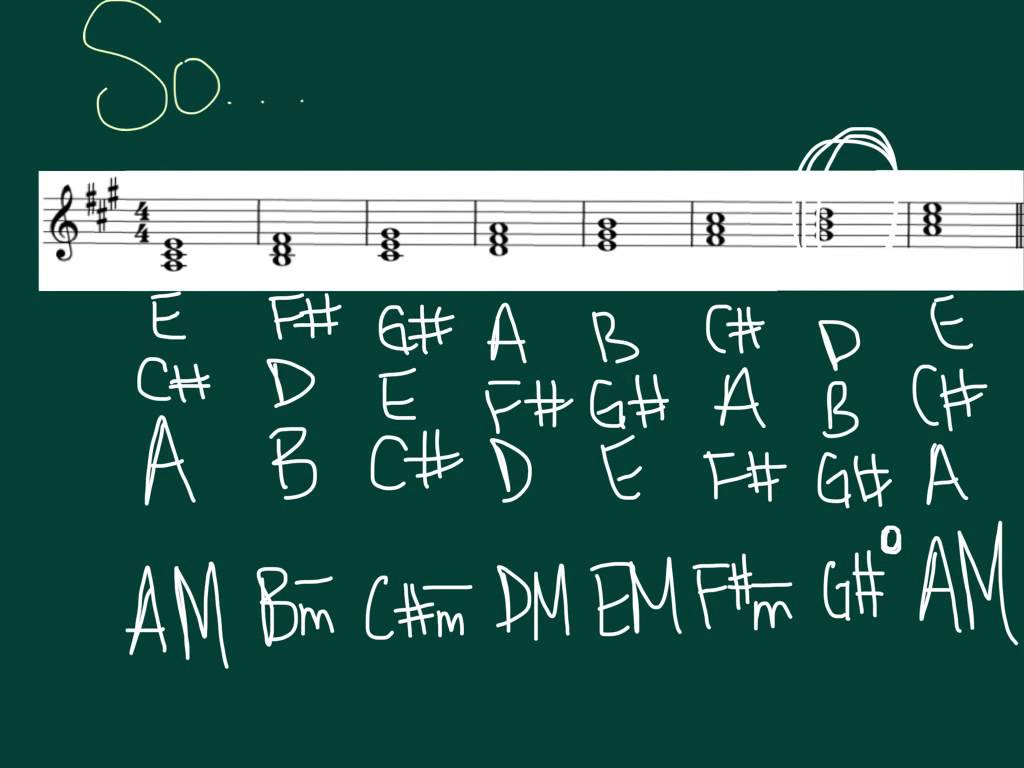 So...
4
4
E F# G# A B C# D E
C# D E F# G# A B C#
A B C# D E F# G# A
AM Bm C#m DM EM F#m G#° AM